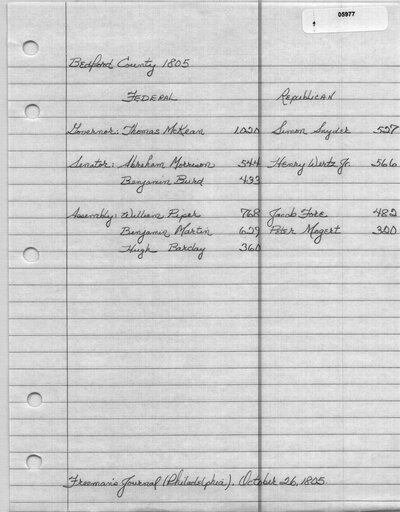 05977
Bedford County 1805
FEDERAL REPUBLICAN
Governor: Thomas McKean 1020 Simon Snyder 527
Senator: Abraham Morrison 544 Henry Wertz Jr. 566
Benjamin Burd 433
Assembly: William Piper 768 Jacob Fore 482
Benjamin Martin 629 Peter Mogert 320
Hugh Barclay 360
Freeman's Journal (Philadelphia). October 26, 1805